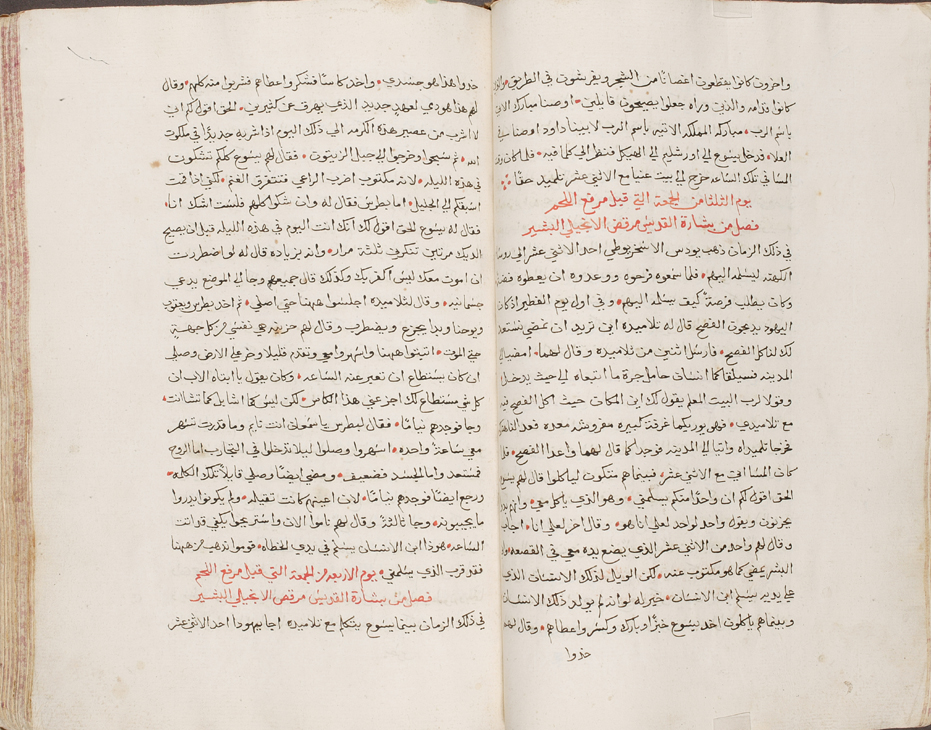 واخرون كانوا يقطعون اغصانًا من الشجر ويفرشون في الطريق
كانوا قدامه والذين وراه جعلوا يصيحون قايلين اوصنا مبارك الاتي
باسم الرب مباركه المملكه الاتيه باسم الرب لابينا داود اوصنا في
العلا فدخل يسوع الي اورشليم الي الهيكل فنظر الي كلما فيه فلما كان
المسا في تلك الساعه خرج الي بيت عنيا مع الاثني عشر تلميد حقًا
يوم الثلثا من الجمعة التي قبل مرفع اللحم
فصل من بشارة القديس مرقص الانجيلي البشير
في ذلك الزمان ذهب يودس الاسخريوطي احد الاثني عشر الي روسا
الكهنه ليسلمه اليهم فلما سمعوه فرحوه ووعدوه ان يعطوه فضة
وكان يطلب فرصة كيف يسلمه اليهم وفي اول يوم الفطير اذ كان
اليهود يدبحون الفصح قال له تلاميده اين تريد ان نمضي نستعد
لك لناكل الفصح فارسل اثنين من تلاميده وقال لهما امضيا الي
المدينه فسيلقاكما انسان حامل جرة ما اتبعاه الي حيث يدخل
وقولا لرب البيت المعلم يقول لك اين المكان حيث اكل الفصح فيه
مع تلاميدي فهو يوريكما غرفة كبيره مفروشه معده فعدا لنا هناك
فخرجا تلميداه واتيا الي المدينه فوجدا كما قال لهما واعدا الفصح فلما
كان المسا اتي مع الاثني عشر فبينما هم متكون لياكلوا قال لهم يسوع
الحق اقول لكم ان واحدًا منكم يسلمني وهو الذي ياكل معي وانهم بدوا
يحزنون ويقول واحد لواحد لعلي انا هو وقال اخر لعلي انا اجاب
وقال لهم واحد من الاثني عشر الذي يضع يده معي في القصعه وان
البشر يمضي كما هو مكتوب عنه لكن الويل لذلك الانسان الذي
علي يديه يسلم ابن الانسان خير له لو انه لم يولد ذلك الانسان
وبينما هم ياكلون اخد يسوع خبزًا وبارك وكسر واعطاهم وقال لهم
خدوا
خدوا هذا هو جسدي واخد كاسًا فشكر واعطاهم فشربوا منه كلهم وقال
لهم هذا هو دمي لعهد جديد الذي يهرق عن كثيرين الحق اقول لكم اني
لا اشرب من عصير هذه الكرمه الي ذلك اليوم اذا شربه جديدًا في ملكوت
الله ثم سبحوا وخرجوا الي جبل الزيتون فقال لهم يسوع كلكم تشكون
في هذه الليله لانه مكتوب اضرب الراعي فتتفرق الغنم لكني اذا قمت
اسبقكم الي الجليل اما بطرس فقال له وان شكوا كلهم فلست اشك انا
فقال له يسوع الحق اقول لك انك انت اليوم في هذه الليله قبل ان يصيح
الديك مرتين تنكرني ثلثة مرار وانه بزياده قال له لو اضطررت
ان اموت معك ليس اكفر بك وكذلك قال جميعهم وجا الي الموضع يدعي
جسمانيه وقال لتلاميده اجلسوا ههنا حتي اصلي ثم اخد بطرس ويعقوب
ويوحنا وبدا يجزع ويضطرب وقال لهم حزينه هي نفسي من كل جهة
حتي الموت اثبتوا ههنا واسهروا معي وتقدم قليلا وخر علي الارض وصلي
ان كان يستطاع ان تعبر عنه الساعه وكان يقول يا ابتاه الاب ان
كل شي مستطاع لك اجز عني هذا الكاس لكن ليس كما اشا بل كما تشا انت
وجا فوجدهم نيامًا فقال لبطرس يا سمعان انت نايم وما قدرت تسهر
معي ساعة واحده اسهروا وصلوا ليلا تدخلوا في التجارب اما الروح
فمستعد واما الجسد فضعيف ومضي ايضًا وصلي قايلا تلك الكلمه
ورجع ايضًا فوجدهم نيامًا لان اعينهم كانت ثقيله ولم يكونوا يدروا
ما يجيبونه وجا ثالثة وقال لهم ناموا الان واستريحوا يكفي قد اتت
الساعه هوذا ابن الانسان يسلم في يدي الخطاه قوموا نذهب من ههنا
فقد قرب الذي يسلمني يوم الاربعه من الجمعة التي قبل مرفع اللحم
فصل من بشارة القديس مرقص الانجيلي البشير
في ذلك الزمان بينما يسوع يتكلم مع تلاميده اجا يهودا احد الاثني عشر